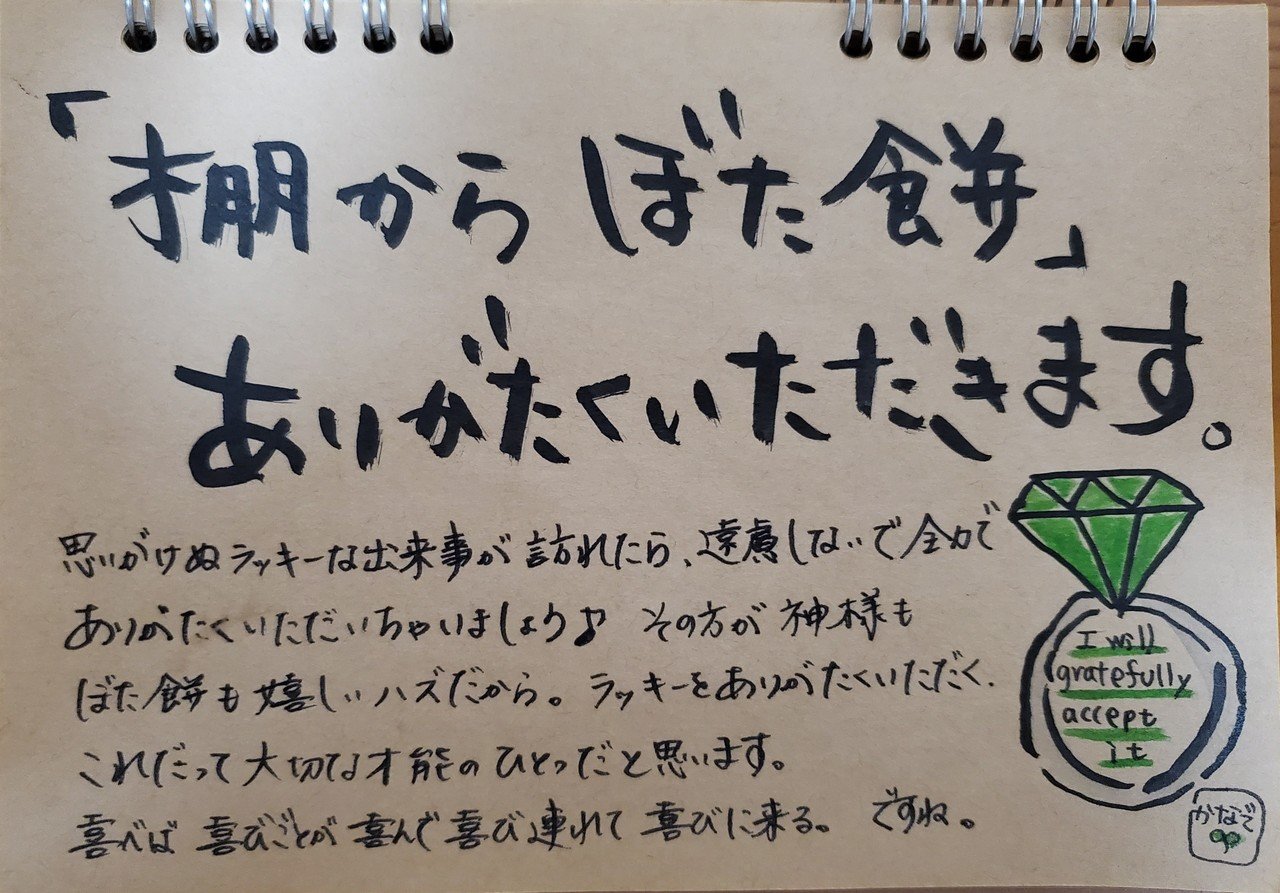 「棚からぼた餅」
ありがたくいただきます。
思いがけぬラッキーな出来事が訪れたら、遠慮しないで全力で
ありがたくいただいちゃいましょう♪ その方が神様も
ぼた餅も嬉しいハズだから。ラッキーをありがたくいただく、
これだって大切な才能のひとつだと思います。
喜べば喜びごとが喜んで喜び連れて喜びに来る。ですね。
I will
gratefully
accept
it
かなぞ